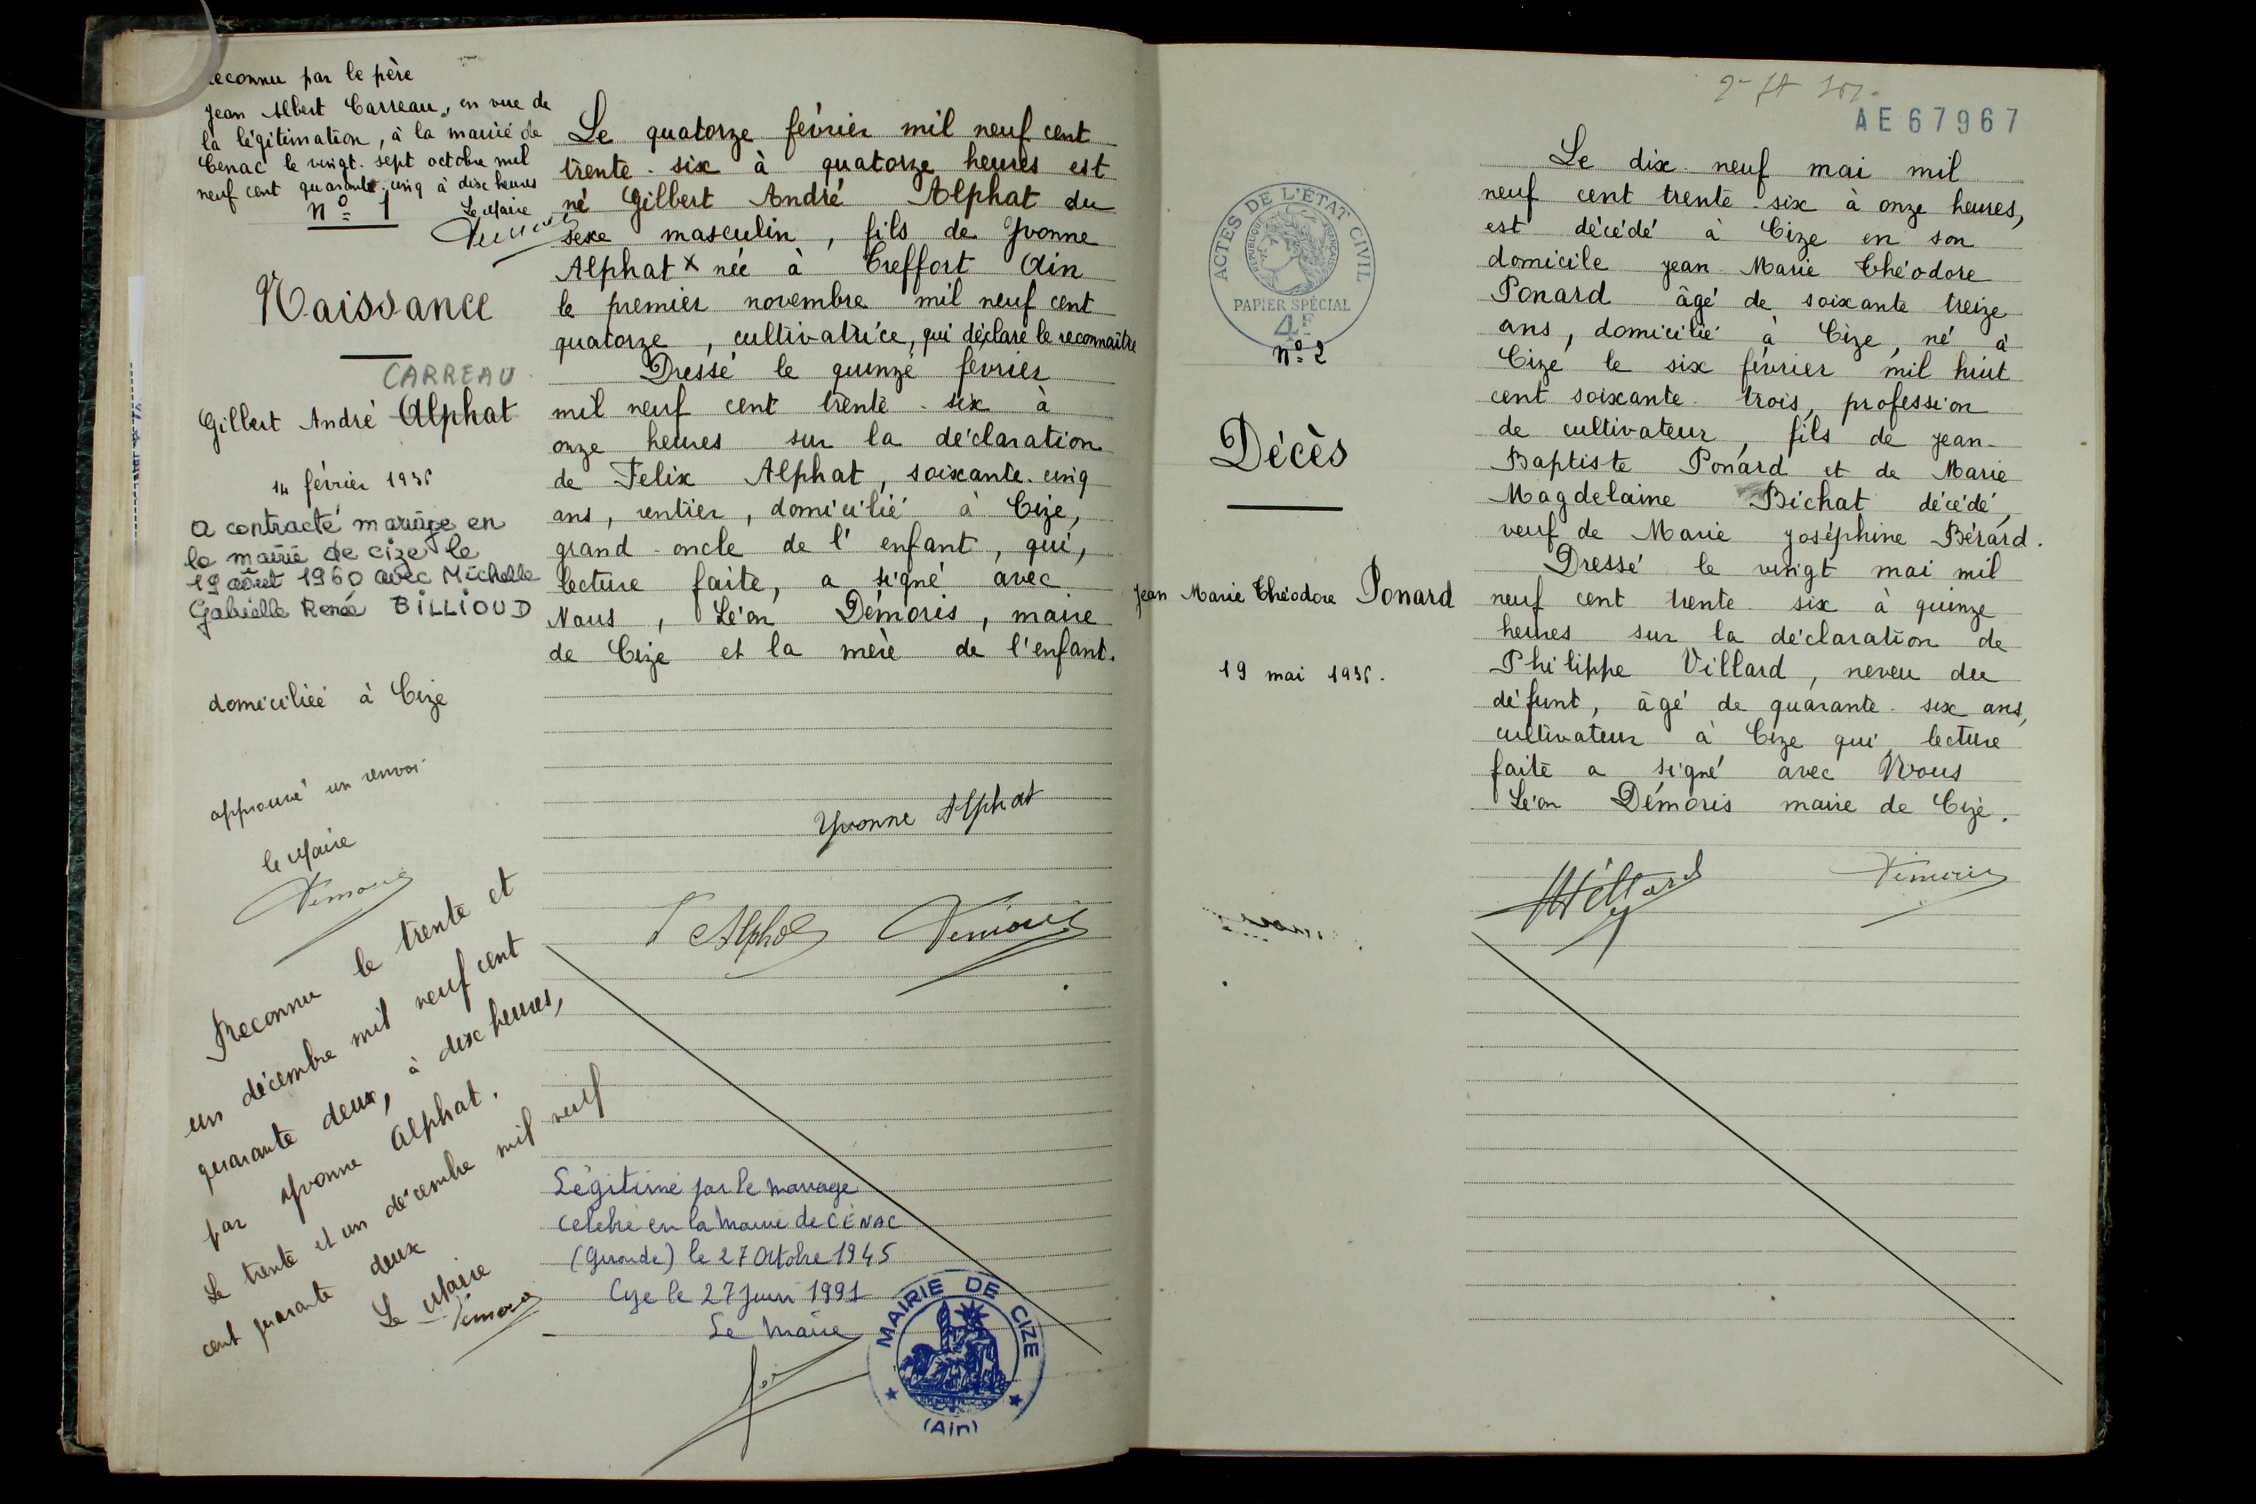 Reconnu par le père
Jean Albert Carreau, en vue de
la légitimation, à la mairie de
Cenac le vingt-sept octobre mil
neuf cent quarante-cinq à dix heures
Le Maire
Nº 1
Naissance
CARREAU
Gilbert André Alphat
14 février 1936
a contracté mariage en
la mairie de cize le
19 août 1960 avec Michelle
Gabrielle Renée BILLIOUD
domiciliée à Cize
approuvé un renvoi
le Maire
Démoris
Reconnu le trente et
un décembre mil neuf cent
quarante deux, à dix heures,
par Yvonne Alphat.
Le trente et un décembre mil neuf
cent quarante deux
Le Maire
Démoris
Le quatorze février mil neuf cent
trente-six à quatorze heures est
né Gilbert André Alphat du
sexe masculin, fils de Yvonne
Alphat x née à Treffort Ain
le premier novembre mil neuf cent
quatorze, cultivatrice, qui déclare le reconnaître
Dressé le quinze février
mil neuf cent trente-six à
onze heures sur la déclaration
de Felix Alphat, soixante-cinq
ans, rentier, domicilié à Cize,
grand-oncle de l'enfant, qui,
lecture faite, a signé avec
Nous, Léon Démoris, maire
de Cize et la mère de l'enfant.
Yvonne Alphat
F Alphat Démoris
Légitimé par le mariage
célébré en la Mairie de CÉNAC
(Gironde) le 27 Octobre 1945
Cize le 27 Juin 1991
Le Maire
MAIRIE DE CIZE
(Ain)
AE67967
ACTES DE L'ÉTAT CIVIL
RÉPUBLIQUE FRANÇAISE
PAPIER SPÉCIAL
4F
Nº 2
Décès
Jean Marie Théodore Ponard
19 mai 1936.
Le dix-neuf mai mil
neuf cent trente-six à onze heures,
est décédé à Cize en son
domicile Jean Marie Théodore
Ponard âgé de soixante treize
ans, domicilié à Cize, né à
Cize le six février mil huit
cent soixante-trois, profession
de cultivateur, fils de Jean-
Baptiste Ponard et de Marie
Magdelaine Bichat décédé,
veuf de Marie Joséphine Bérard.
Dressé le vingt mai mil
neuf cent trente-six à quinze
heures sur la déclaration de
Philippe Villard, neveu du
défunt, âgé de quarante-six ans,
cultivateur à Cize qui, lecture
faite a signé avec Nous
Léon Démoris maire de Cize.
Villard Démoris